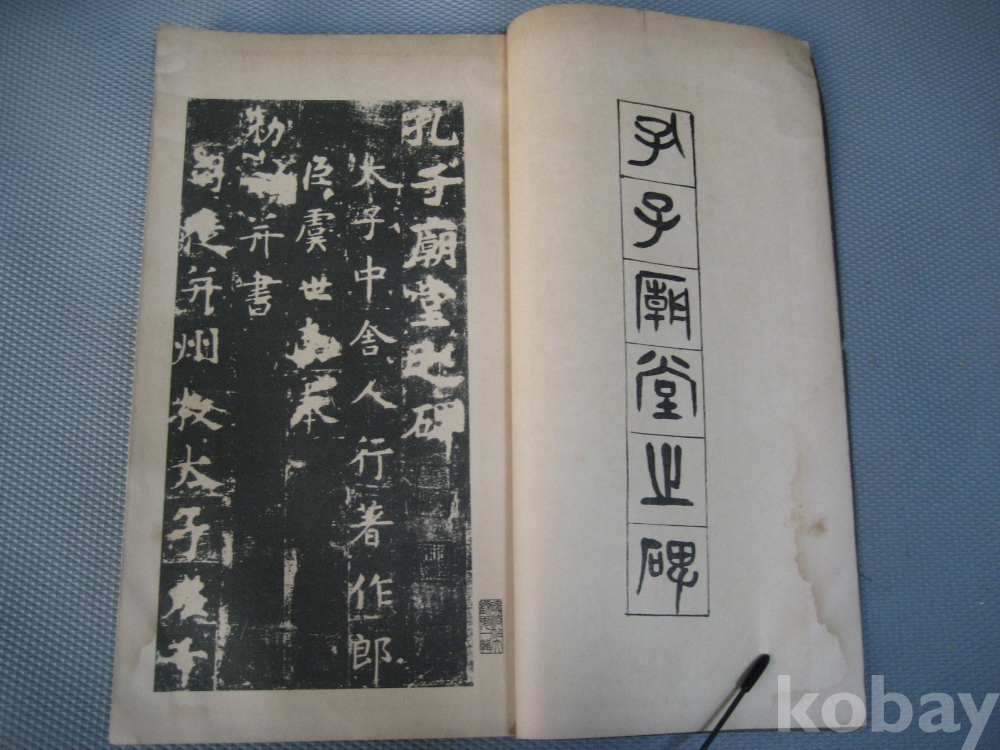 孔子廟堂之碑
孔子廟堂之碑
太子中舍人行著作郎
臣虞世南奉
勑
并書
司徒并州牧太子左千
kobay